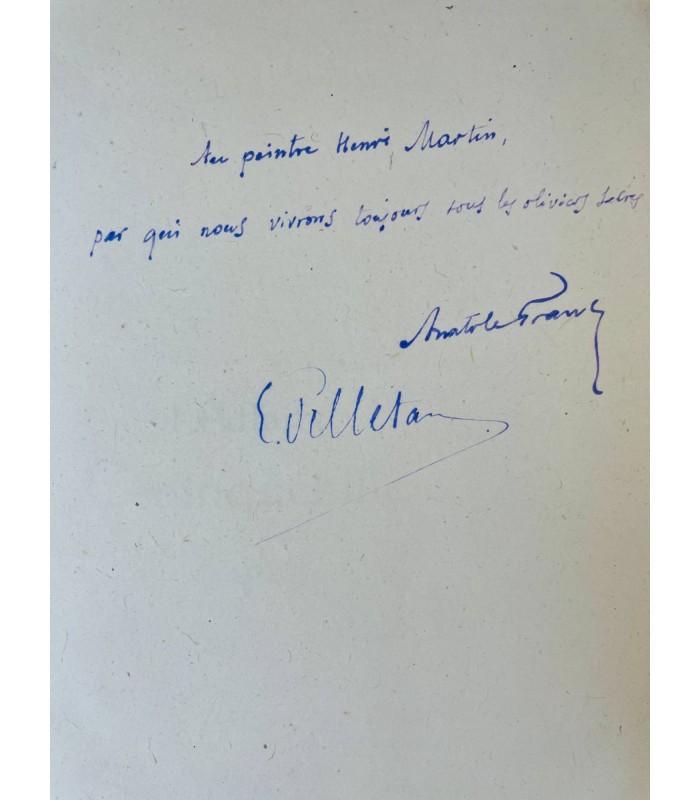 Au peintre Henri Martin,
par qui nous vivrons toujours sous les oliviers sacrés
Anatole France
E. Pelletan